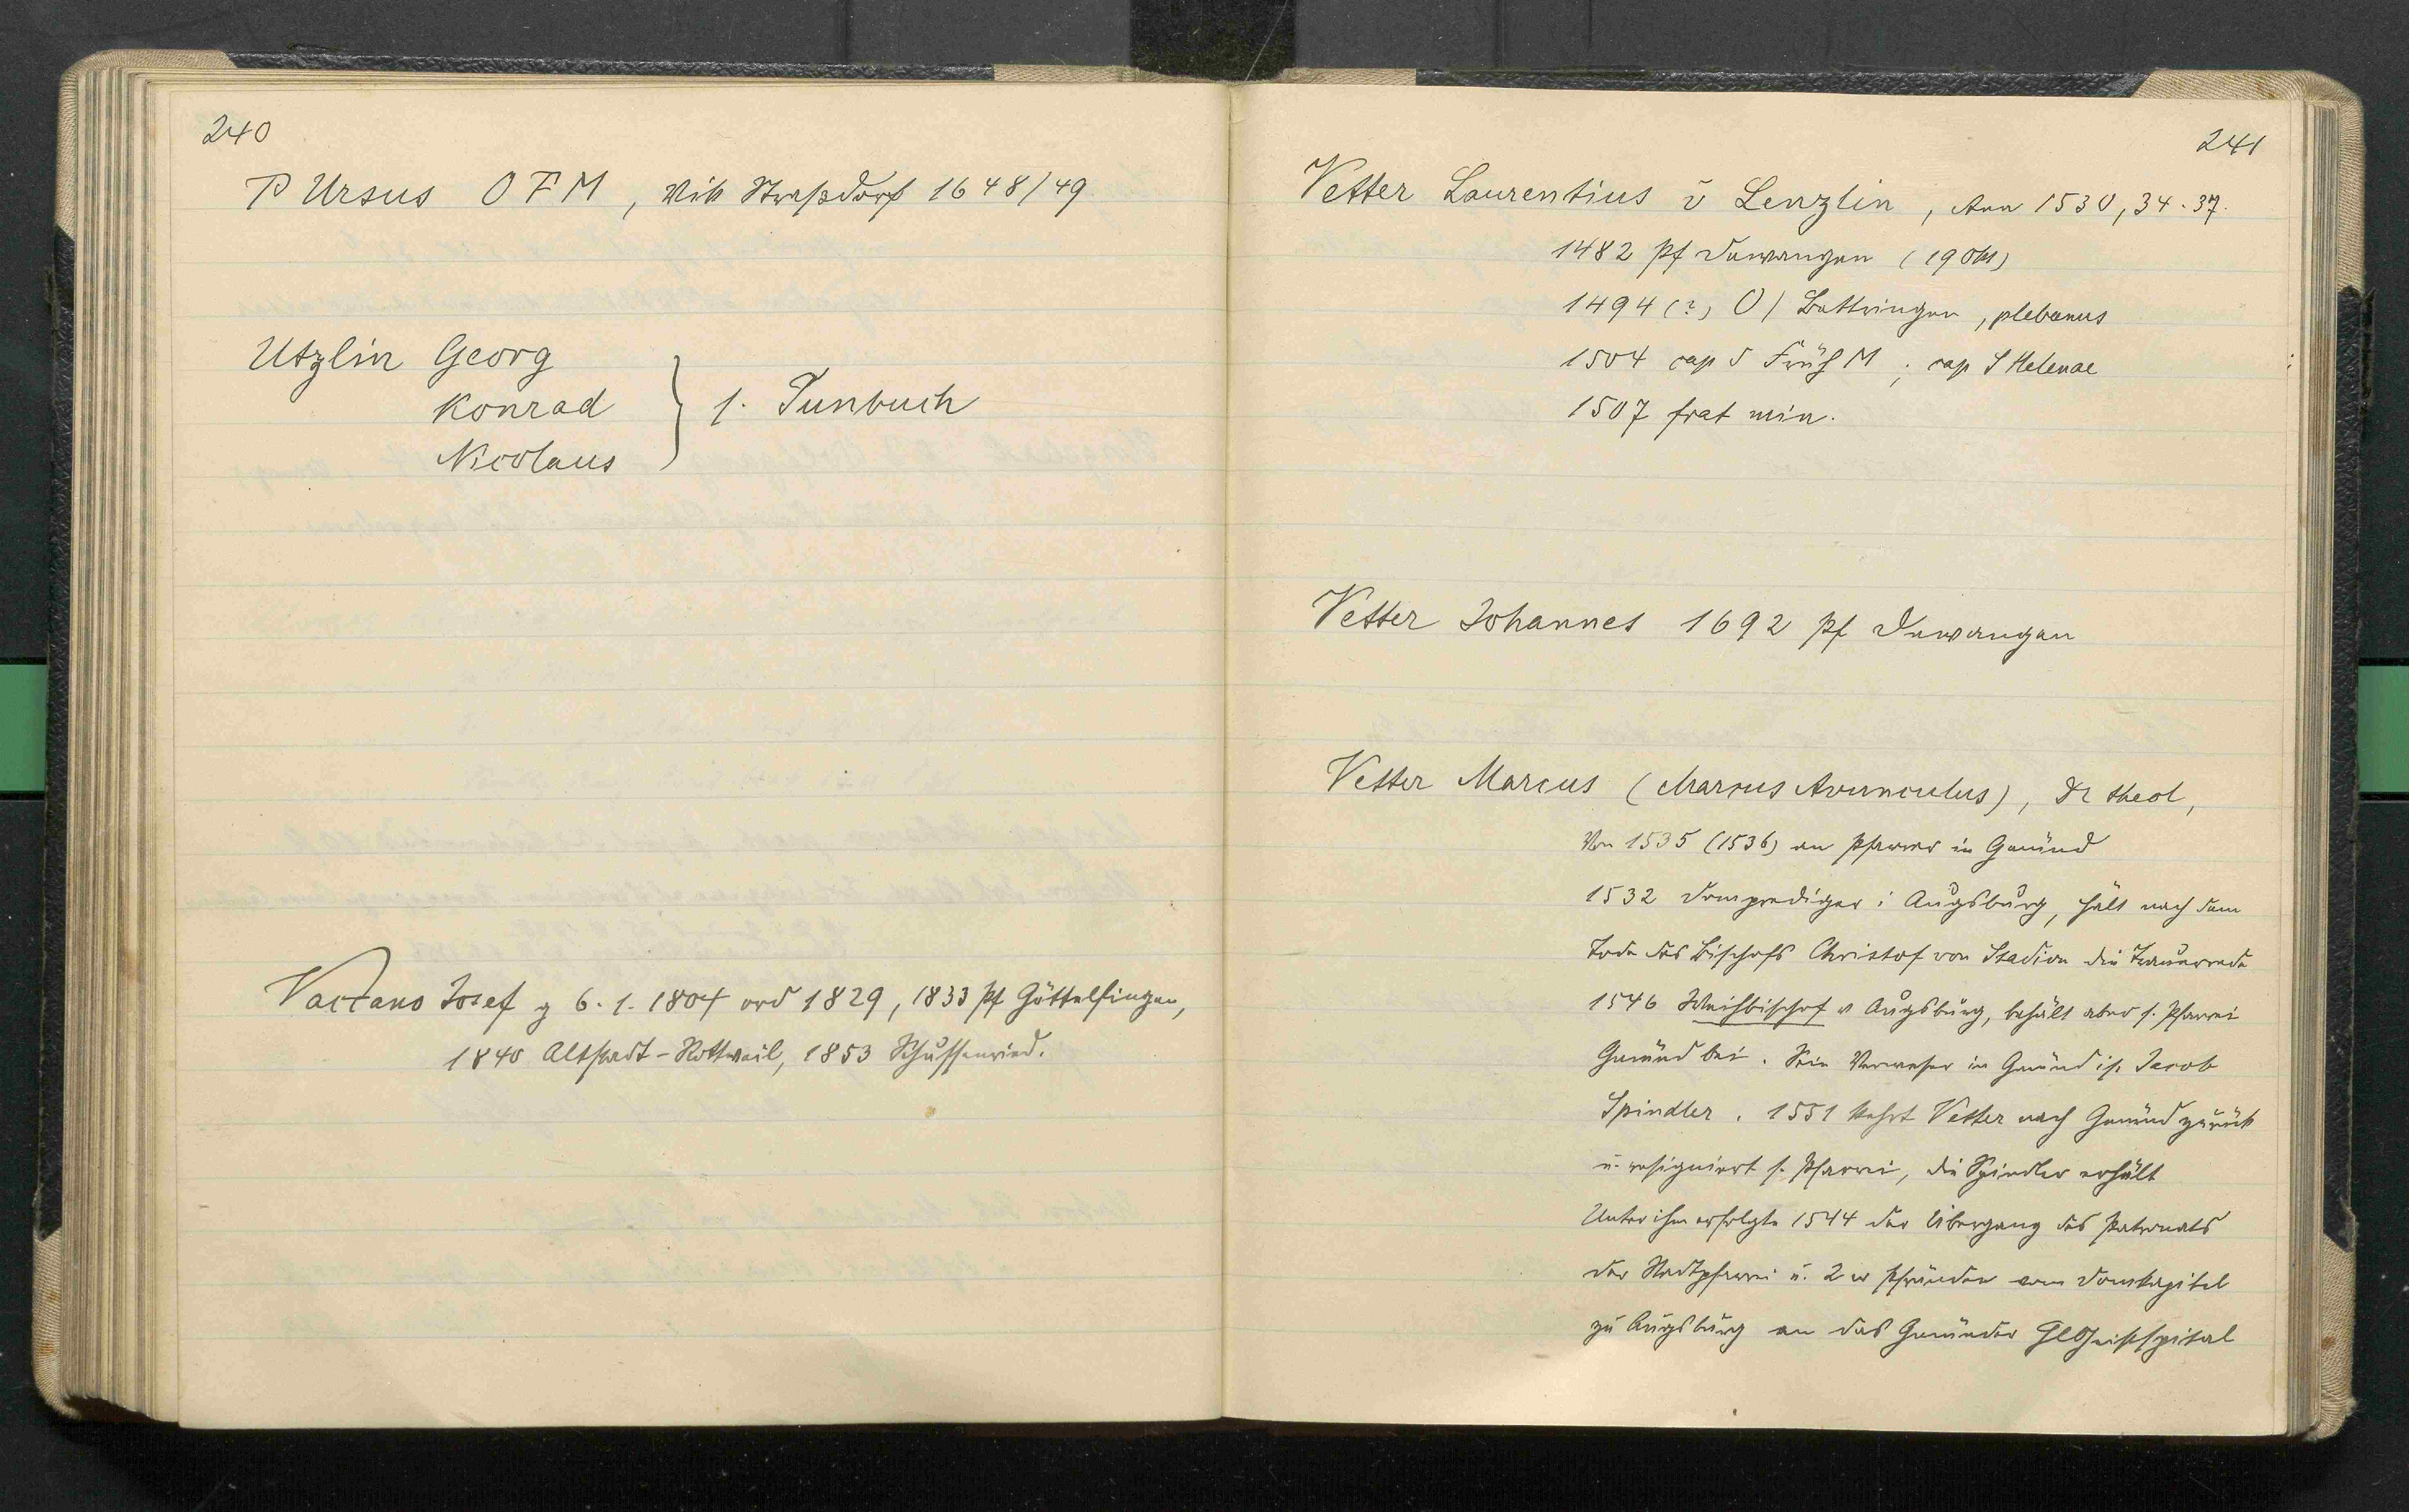 240
P Ursus OFM, Vik Straßdorf 1648/49
Utzlin Georg
Konrad } s. Tunbuch
Nicolaus
Vaccano Josef g 6.1.1804 ord 1829, 1833 Pf Göttelfingen,
1840 Altstadt-Rottweil, 1853 Schussenried.
241
Vetter Laurentius v Lenzlin, Ann 1530, 34. 37.
1482 Pf Dewangen (19 Okt)
1494 (?) O/ Bettringen, plebanus
1504 cap d Früh M; cap S Helenae
1507 frat min.
Vetter Johannes 1692 Pf Dewangen
Vetter Marcus (Marcus Avunculus), Dr theol,
Von 1535 (1536) an Pfarrer in Gmünd
1532 Domprediger i Augsburg, hält nach dem
Tode des Bischofs Christof von Stadion die Trauerrede
1546 Weihbischof v Augsburg, behält aber s. Pfarrei
Gmünd bei. Sein Verweser in Gmünd ist Jacob
Spindler. 1551 kehrt Vetter nach Gmünd zurück
u. resigniert s. Pfarrei, die Spindler erhält
Unter ihm erfolgte 1544 der Übergang des Patronats
der Stadtpfarrei u. 2er Pfründen vom Domkapitel
zu Augsburg an das Gmünder Hlgeistspital